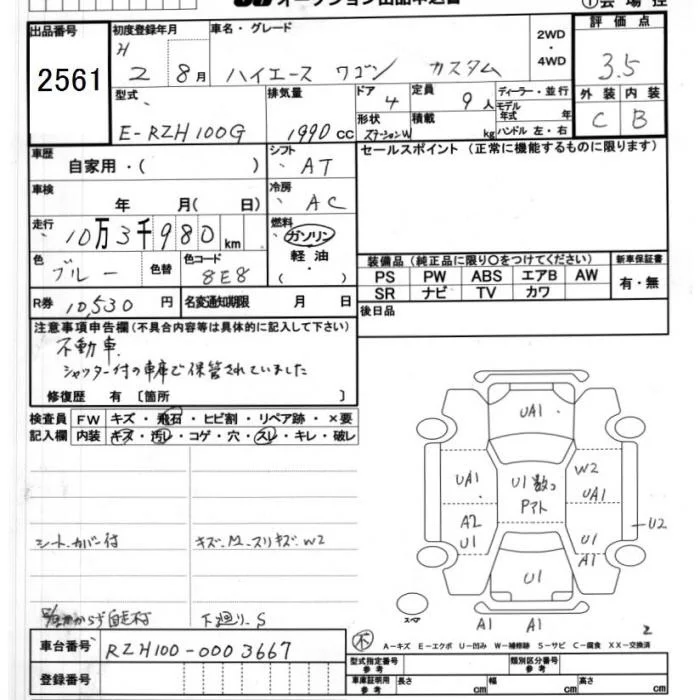 オークション出品申込書 ①会場控
出品番号 初度登録年月 車名・グレード 2WD・4WD 評価点
2561
H 2 8月 ハイエース ワゴン カスタム 3.5
型式 排気量 ドア 4 定員 9人 ディーラー・並行 外装 内装
E-RZH100G 1990cc 形状 ステーションW 積載 kg モデル年式 年 ハンドル 左・右 C B
車歴 自家用・( ) シフト AT セールスポイント(正常に機能するものに限ります)
車検 年 月( 日) 冷房 AC
走行 10万3千980km 燃料 ガソリン 軽油 ( ・ )
色 ブルー 色替 色コード 8E8
装備品(純正品に限り○をつけてください) 新車保証書
PS PW ABS エアB AW 有・無
SR ナビ TV カワ
R券 10,530円 名変通知期限 月 日 後日品
注意事項申告欄(不具合内容等は具体的に記入して下さい)
不動車
シャッター付の車庫で保管されていました
修復歴 有 〔箇所 〕
検査員 FW キズ・飛石・ヒビ割・リペア跡・×要
記入欄 内装 キズ・汚レ・コゲ・穴・スレ・キレ・破レ
UA1
UA1 U1数コ W2
Pアト UA1
A2 U1 U2
U1 A1
U1
シートカバー付 キズ.M.スリキズ.W2
下廻り.S
スペア A1 A1
2
車台番号 RZH100-0003667
不 A-キズ E-エクボ U-凹み W-補修跡 S-サビ C-腐食 XX-交換済
登録番号
型式指定番号 参考 類別区分番号 参考
車庫証明用 参考 長さ cm 幅 cm 高さ cm